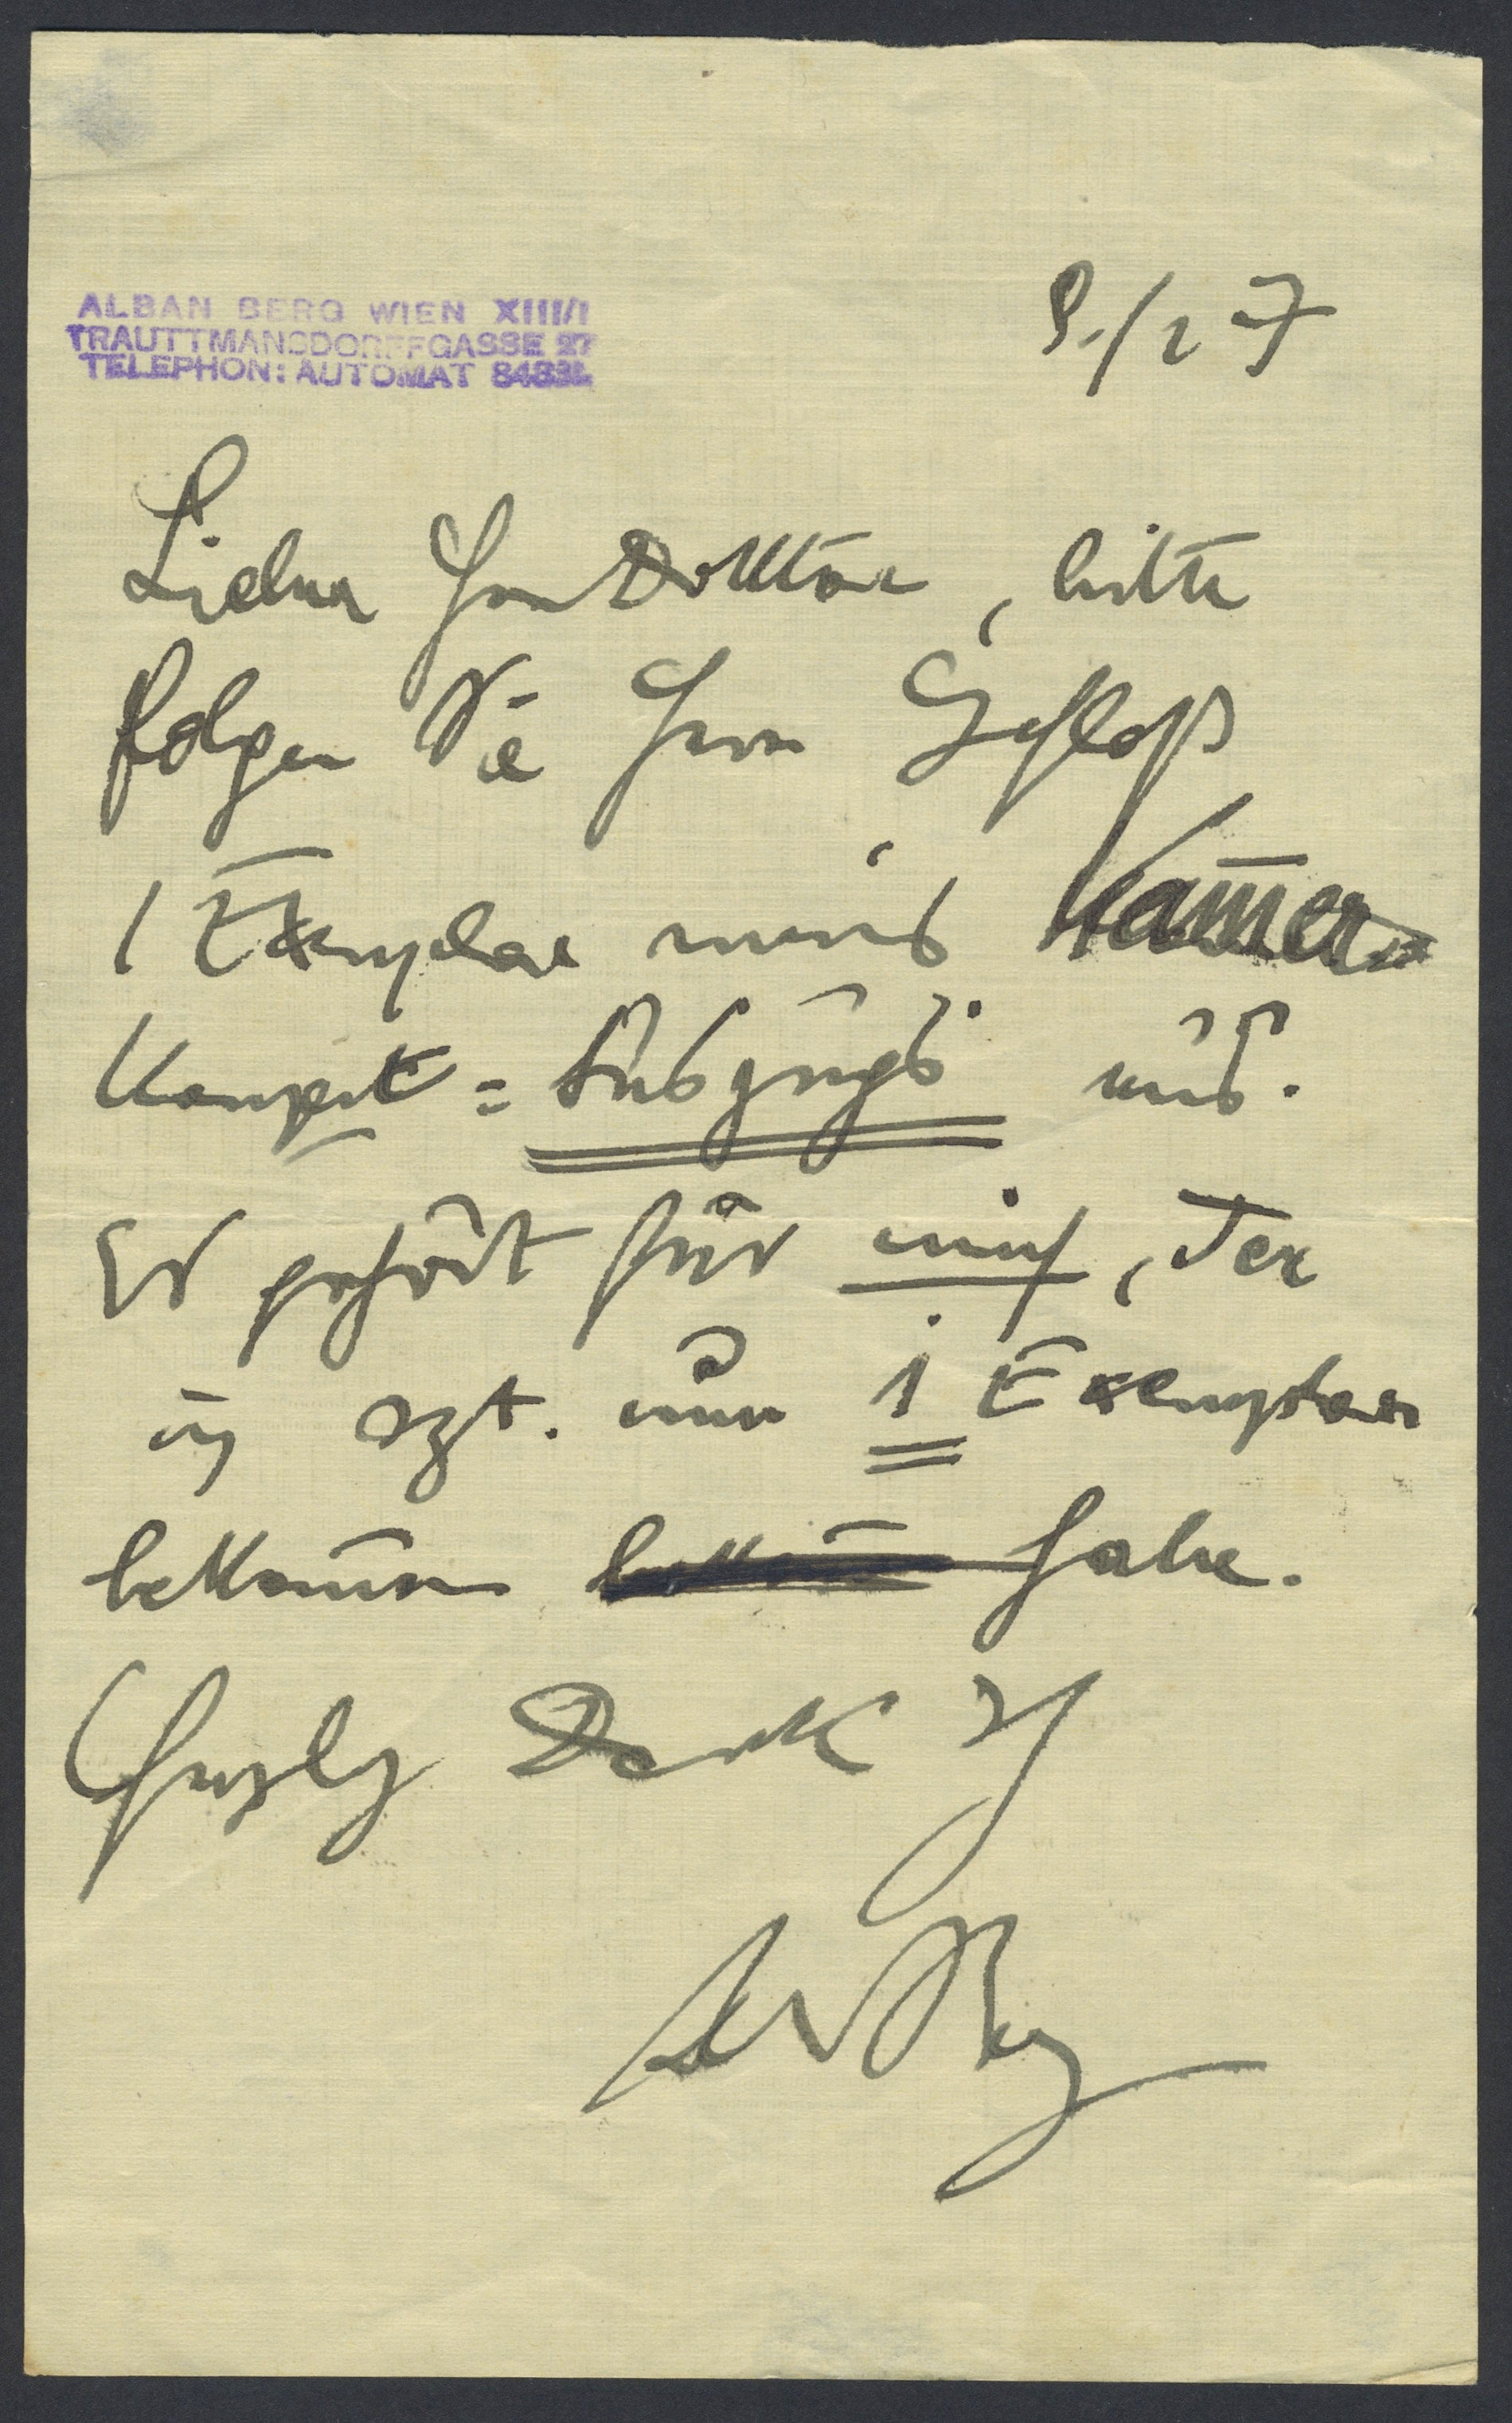 ALBAN BERG WIEN XIII/1
TRAUTTMANSDORFFGASSE 27
TELEPHON: AUTOMAT 84831
9./2 7
Lieber Herr Doktor, bitte
folgen Sie Herrn Schloß
1 Exemplar meines Kam̅er
Konzert=Auszugs aus.
Er gehört für mich, der
ich szt. nur 1 Exemplar
bekom̅en habe.
Herzlich Dank Ihr
Alb Berg